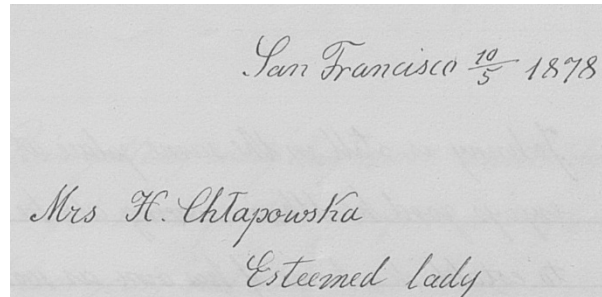 San Francisco 10/5 1878
Mrs H. Chłapowska
Esteemed lady